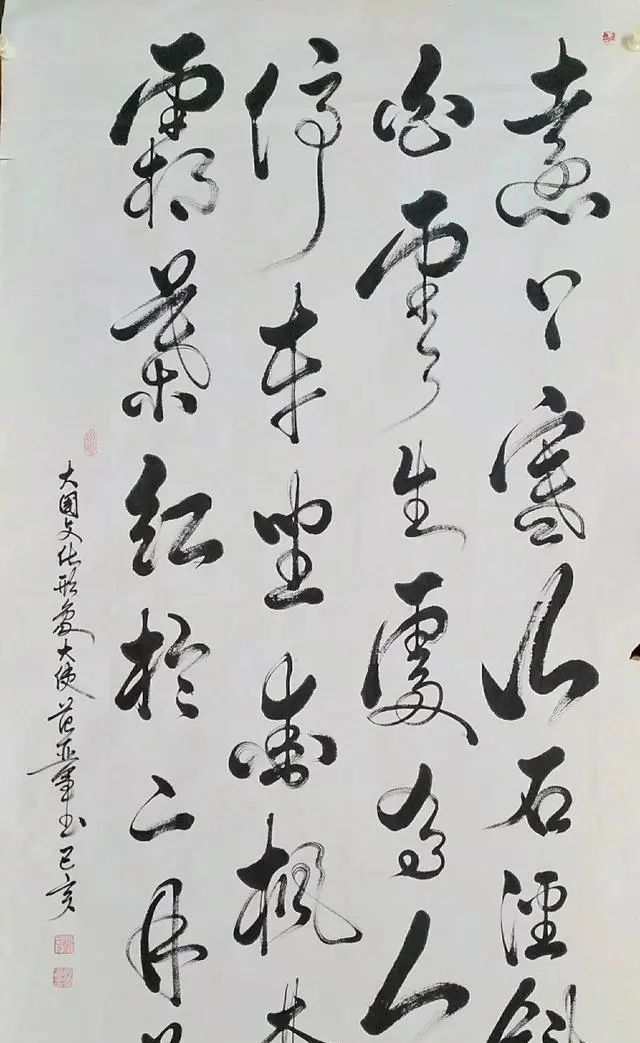 遠上寒山石徑斜
白雲生處有人
停車坐愛楓林
霜葉紅於二月
大國文化形象大使范亚军书己亥